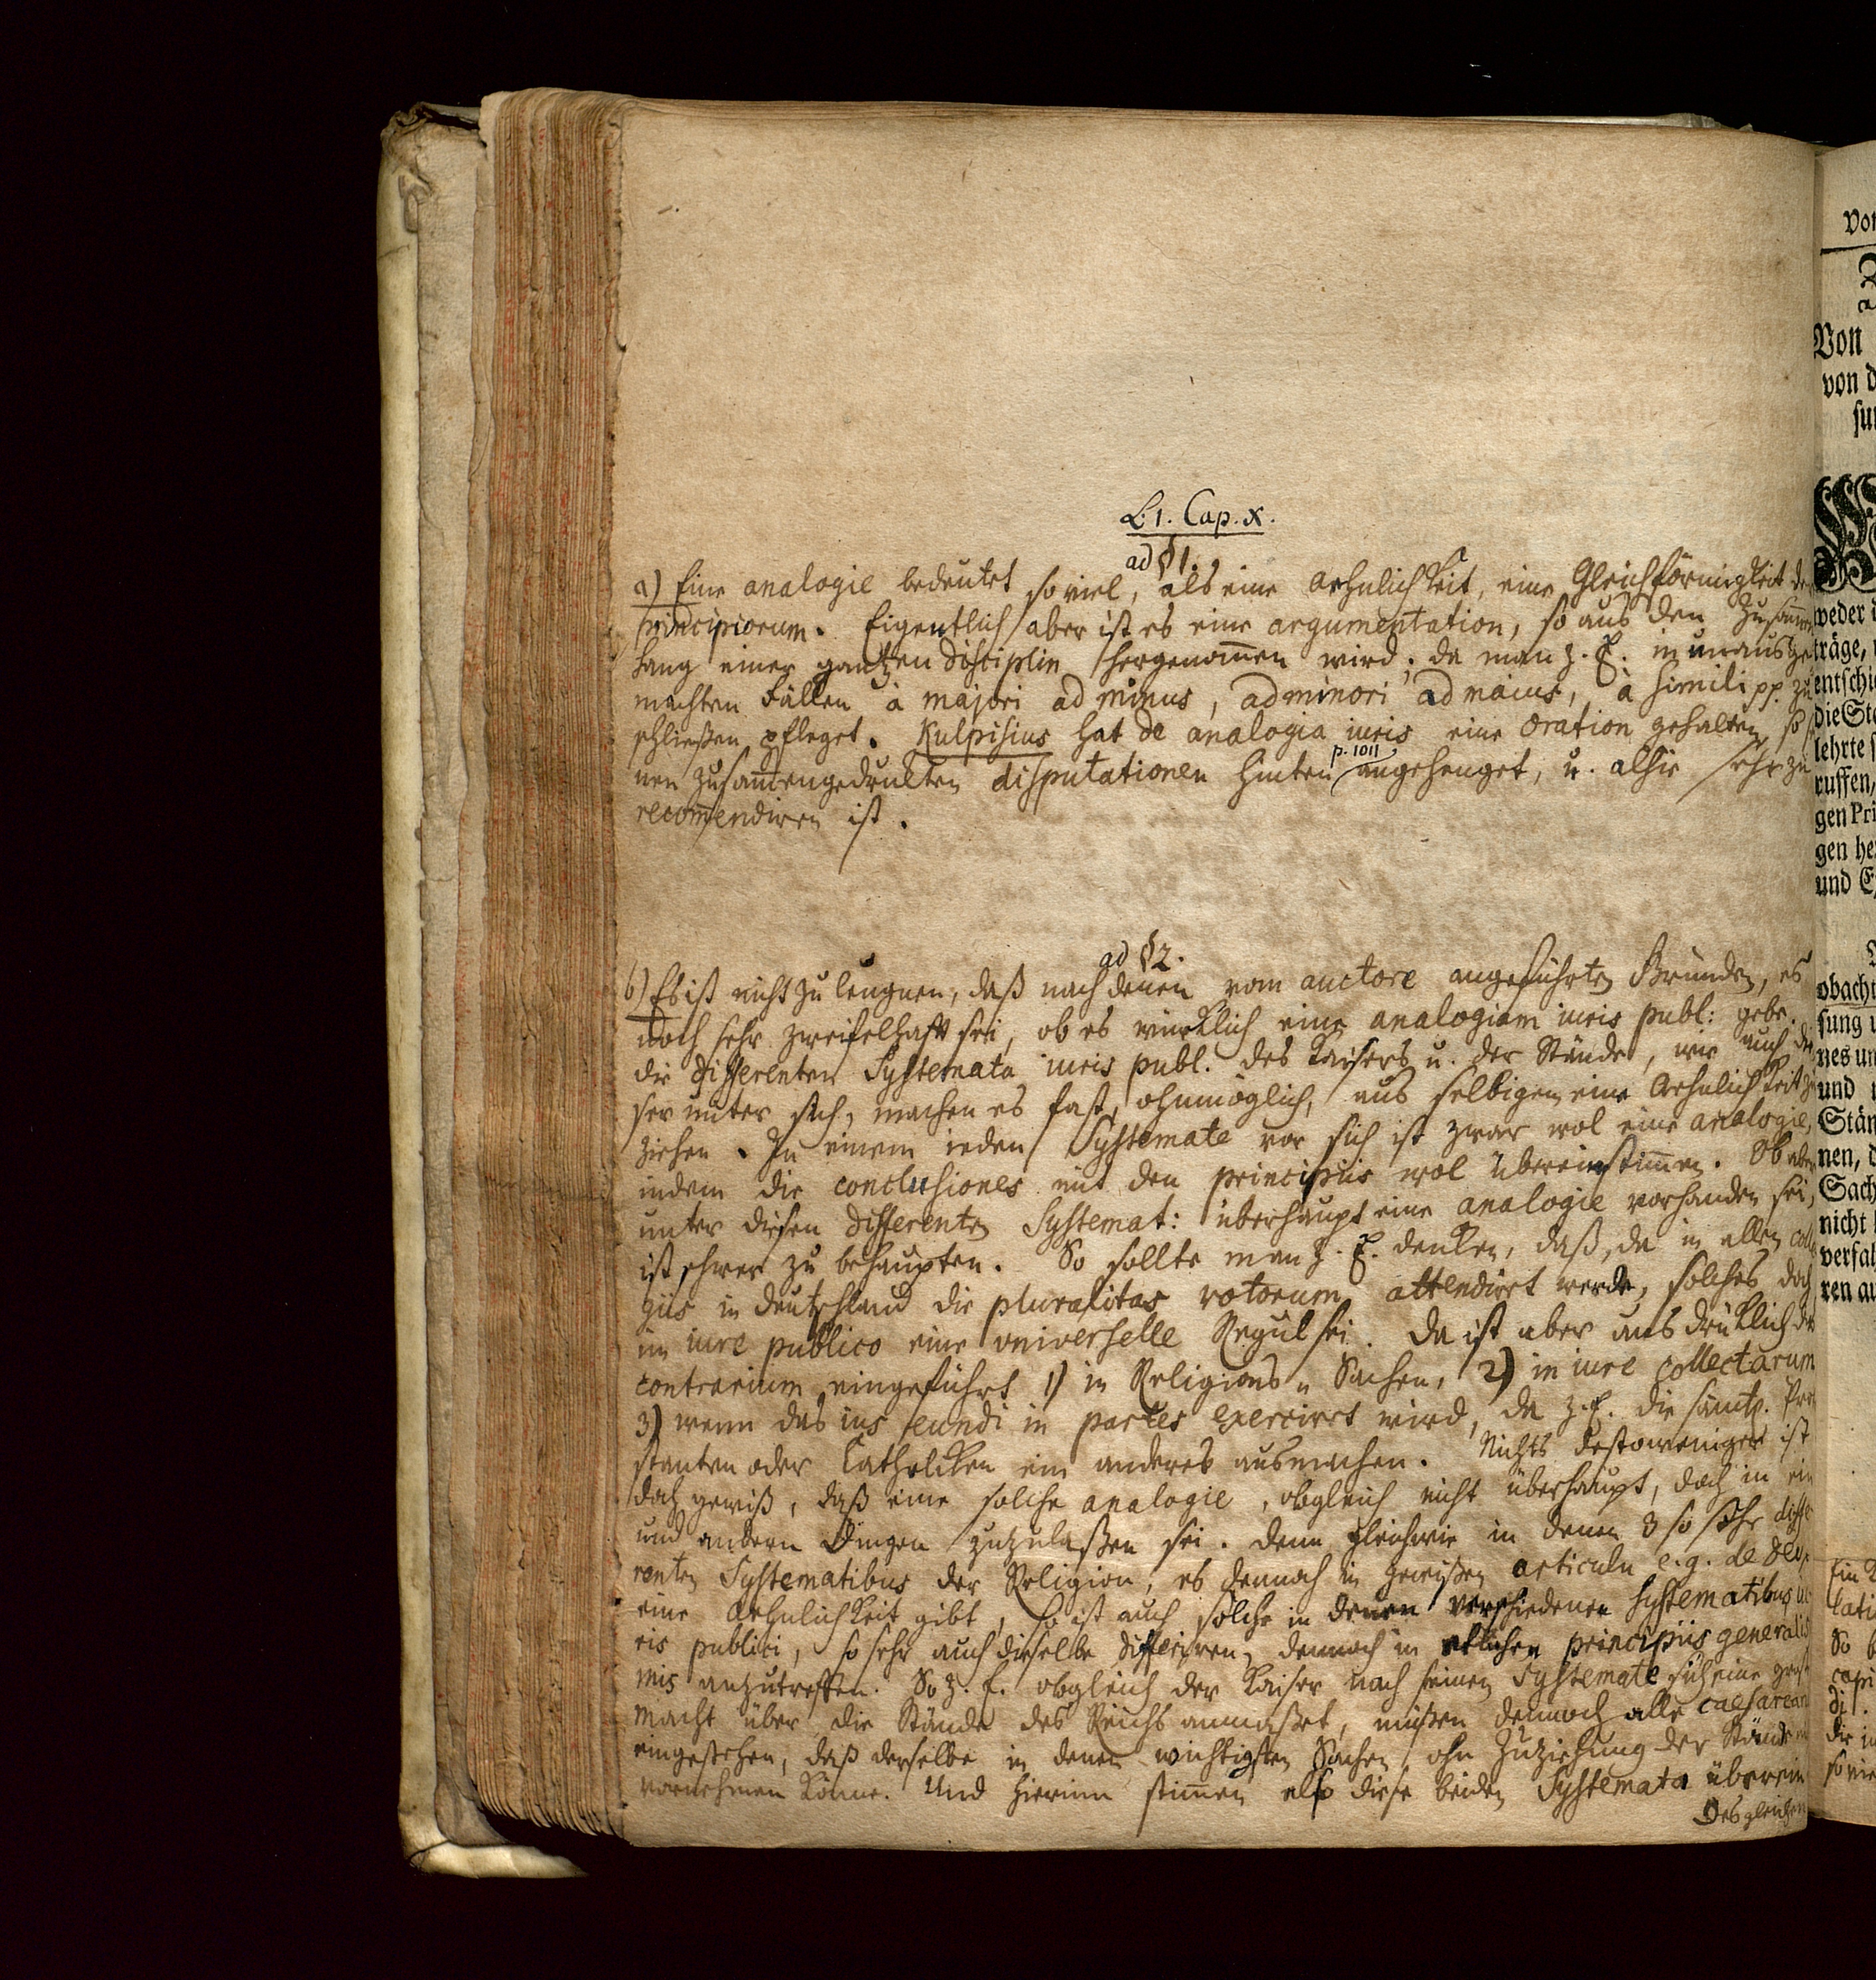 L. 1. Cap. X.
ad §1.
a) Eine analogie bedeutet so viel, als eine Aehnlichkeit, eine Gleichförmigkeit der
principiorum. Eigentlich aber ist es eine argumentation, so aus den Zusam̄en
hang einer gantzen Disciplin hergenom̄en wird, da man z. E. in unausge
machten Fällen à majori ad minus, ad minori ad maius, à simili pp. zu
schließen pfleget. Kulpisius hat de analogia iuris eine Oration gehalten, so sei
nen zusam̄engedrukten disputationen hinten angehenget, u. alhie sehr zu
p. 1011
recom̄endiren ist.
ad §2.
b) Es ist nicht zu leugnen, daß nach denen vom auctore angeführten Gründen, es
noch sehr zweifelhaft sei, ob es würklich eine analogiam iuris publ: gebe.
die differenten Systemata iuris publ. des Kaisers u. der Stände, wie auch die
ser unter sich, machen es fast ohnmöglich, aus selbigen eine Aehnlichkeit zu
ziehen. In einem ieden Systemate vor sich ist zwar wol eine analogie,
indem die conclusiones mit den principiis wol übereinstim̄en. Ob aber
unter diesen differenten Systemat: überhaupt eine analogie vorhanden sei,
ist schwer zu behaupten. So sollte man z. E. denken, daß, da in allen colle
giis in Deutschland die pluralitas votorum attendirt werde, solches doch
im iure publico eine vniverselle Regul sei. Da ist aber ausdrüklich das
contrarium eingeführt 1) in Religions Sachen, 2) in iure collectarum
3) wenn das ius eundi in partes exercirt wird, da z. E. die sämtl. Prote
stanten oder Catholicken ein anderes ausmachen. Nichts destoweniger ist
doch gewiß, daß eine solche analogie, obgleich nicht überhaupt, doch in ein
und andern Dingen zuzulaßen sei. Denn gleichwie in denen 3 so sehr diffe
renten Systematibus der Religion, es dennoch in gewißen articuln e. g. de Deo,
eine Aehnlichkeit gibt, so ist auch solche in denen verschiedenen Systematibus iu
ris publici, so sehr auch dieselbe differiren, dennoch in etlichen principiis generalis
mis anzutreffen. So z. E. obgleich der Kaiser nach seinen Systemate sich eine große
Macht über die Stände des Reichs anmaßet, müßen dennoch alle caesareani
eingestehen, daß derselbe in denen wichtigsten Sachen ohn Zuziehung der Stände nichts
vornehmen könne. Und hierinn stim̄en also diese beiden Systemata überein
Desgleichen
Von
von d
weder
träge,
entschi
die Sta
lehrte
ruffen,
gen Pri
gen her
und E
obacht
sung
nes un
und
Stän
nen, d
Sach
nicht
verfah
ren au